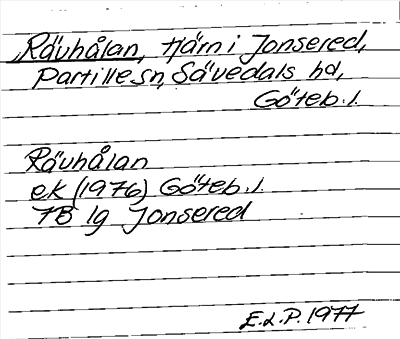 Rävhålan, tjärn i Jonsered,
Partille sn, Sävedals hd,
Göteb. l.
Rävhålan
ek (1976) Göteb. l.
7B 1g Jonsered
E.d.P. 1977